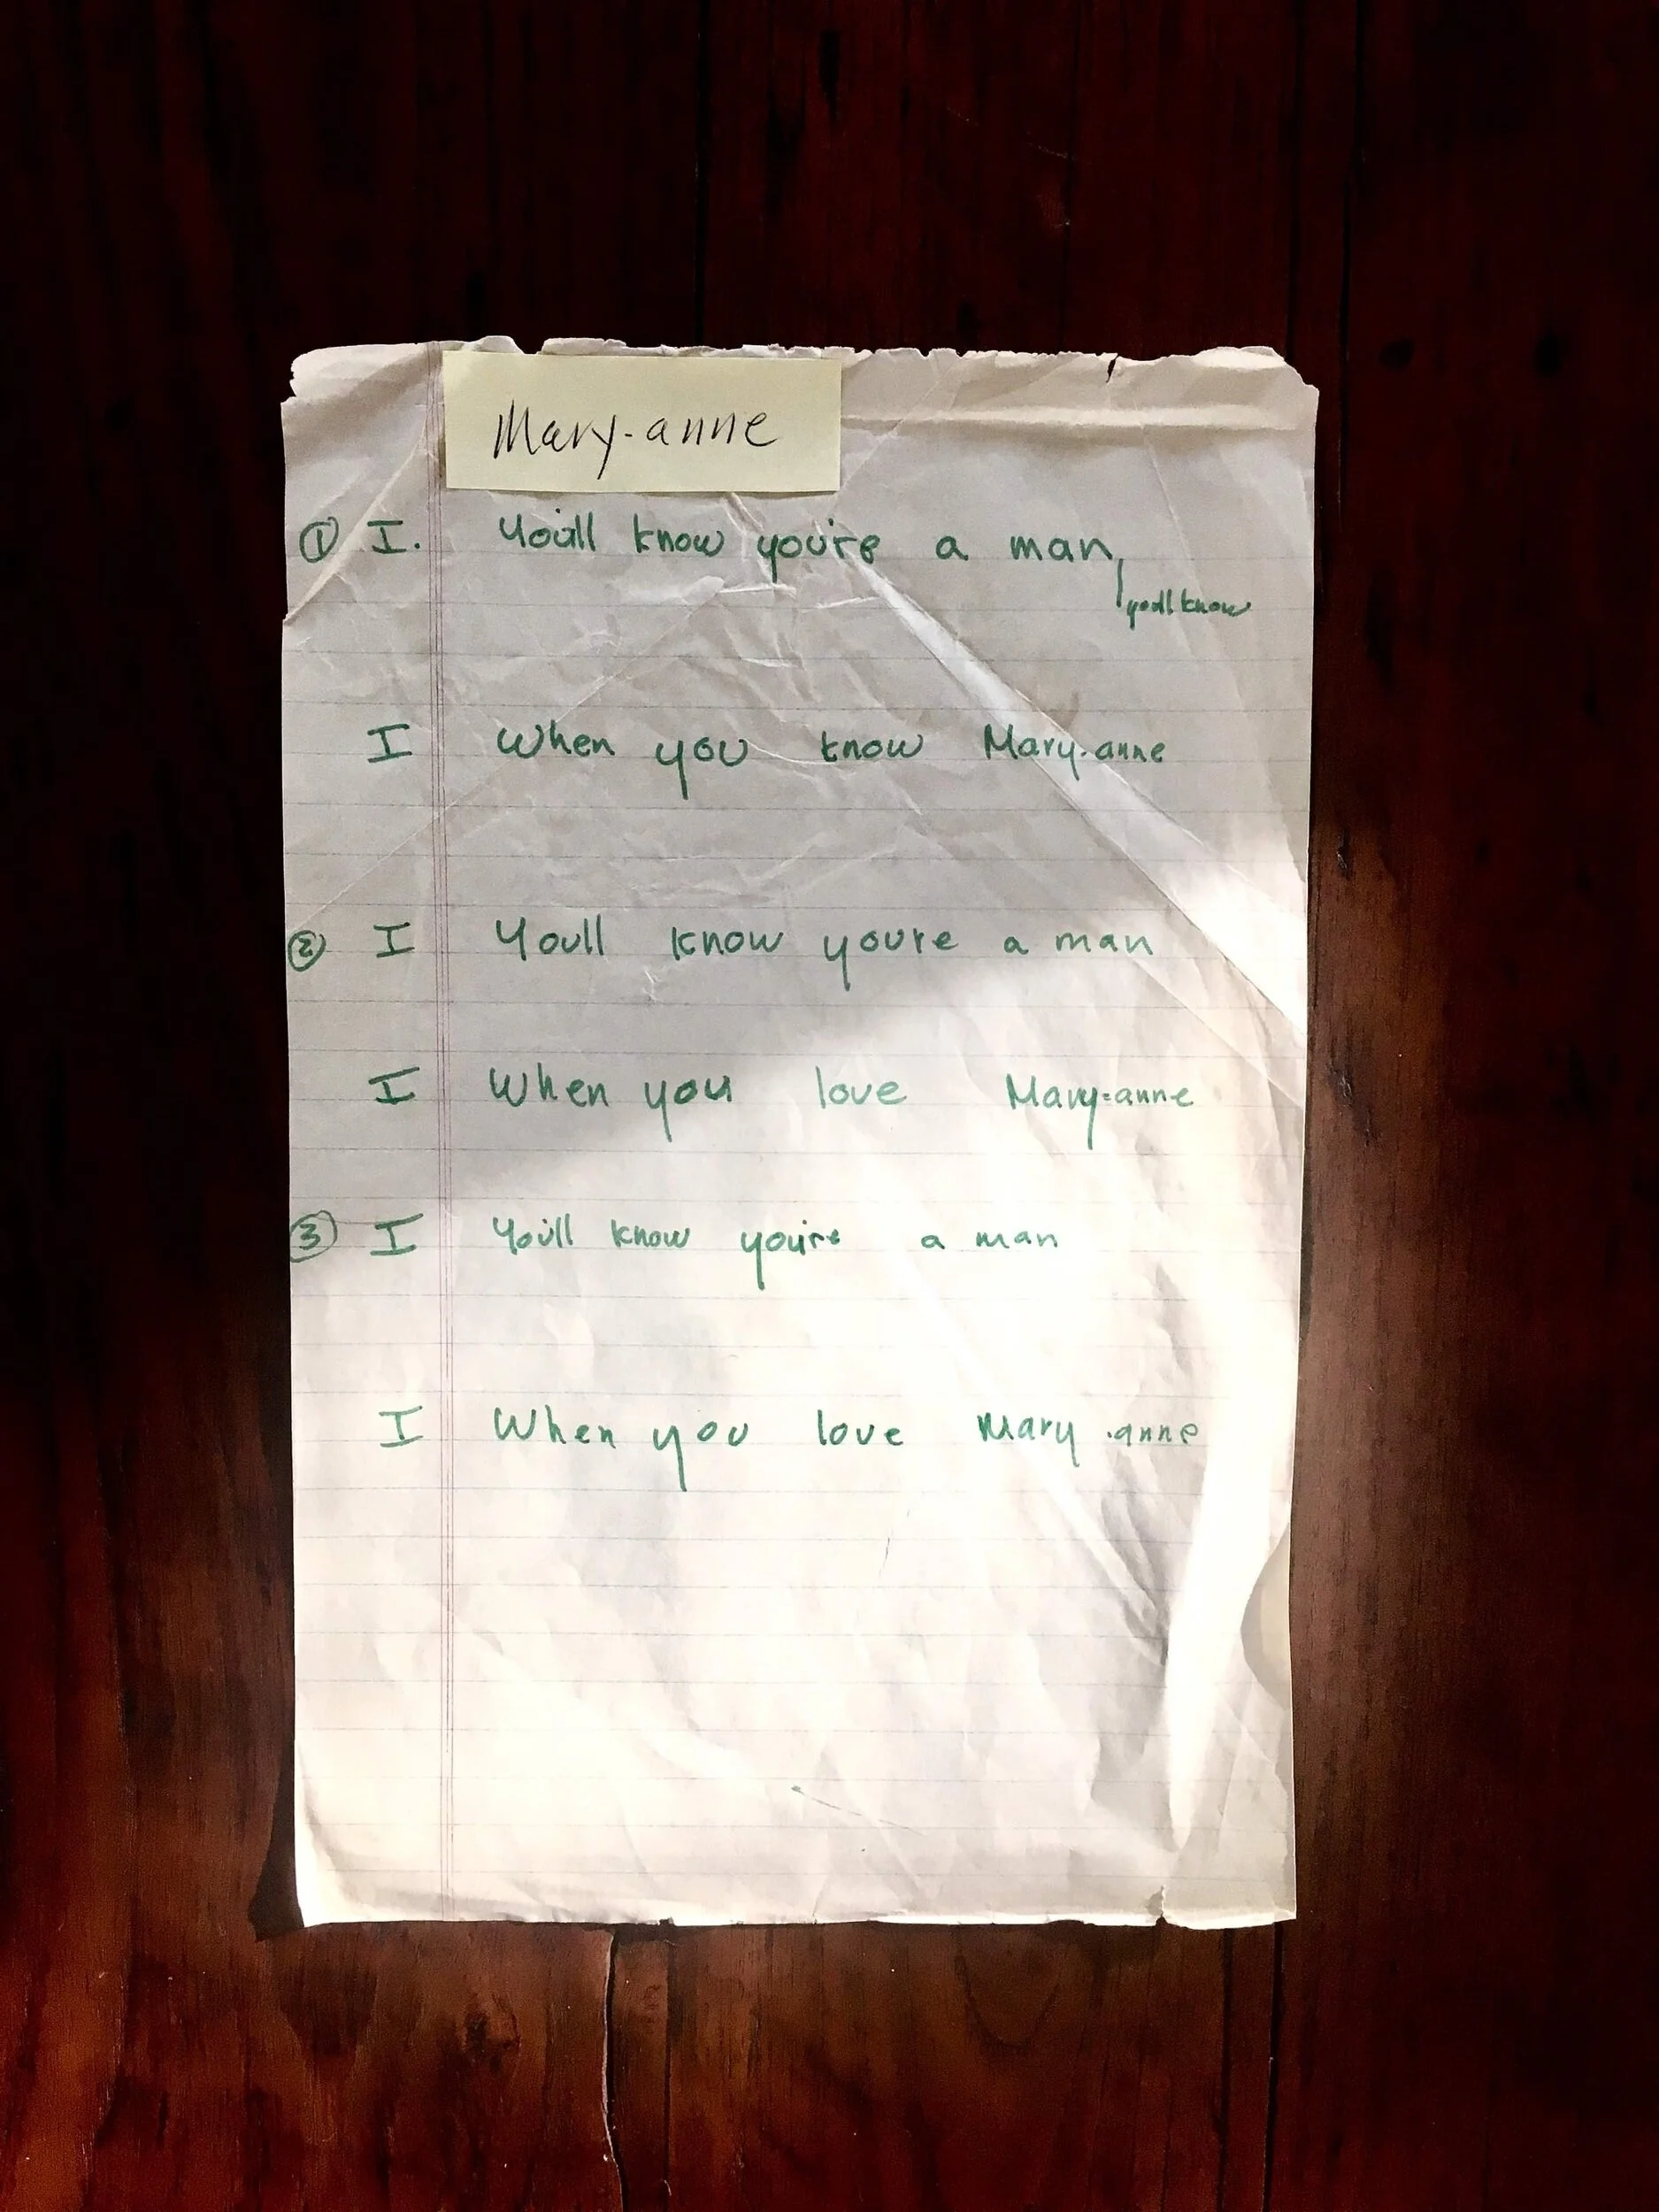 Mary-anne
① I. You'll know you're a man,
you'll know
I When you know Mary-anne
② I Youll know youre a man
I When you love Mary-anne
③ I You'll know you're a man
I When you love Mary-anne